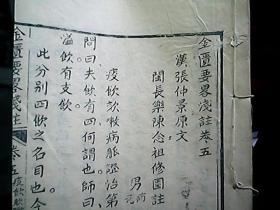 金匱要畧淺註卷五
漢張仲景原文
閩長樂陳念祖修園註
男
元
痰飲欬嗽病脈證治第
問曰夫飲有四何謂也師曰
溢飲有支飲
此分別四飲之名目也今
金匱要畧淺註 卷五 痰飲欬